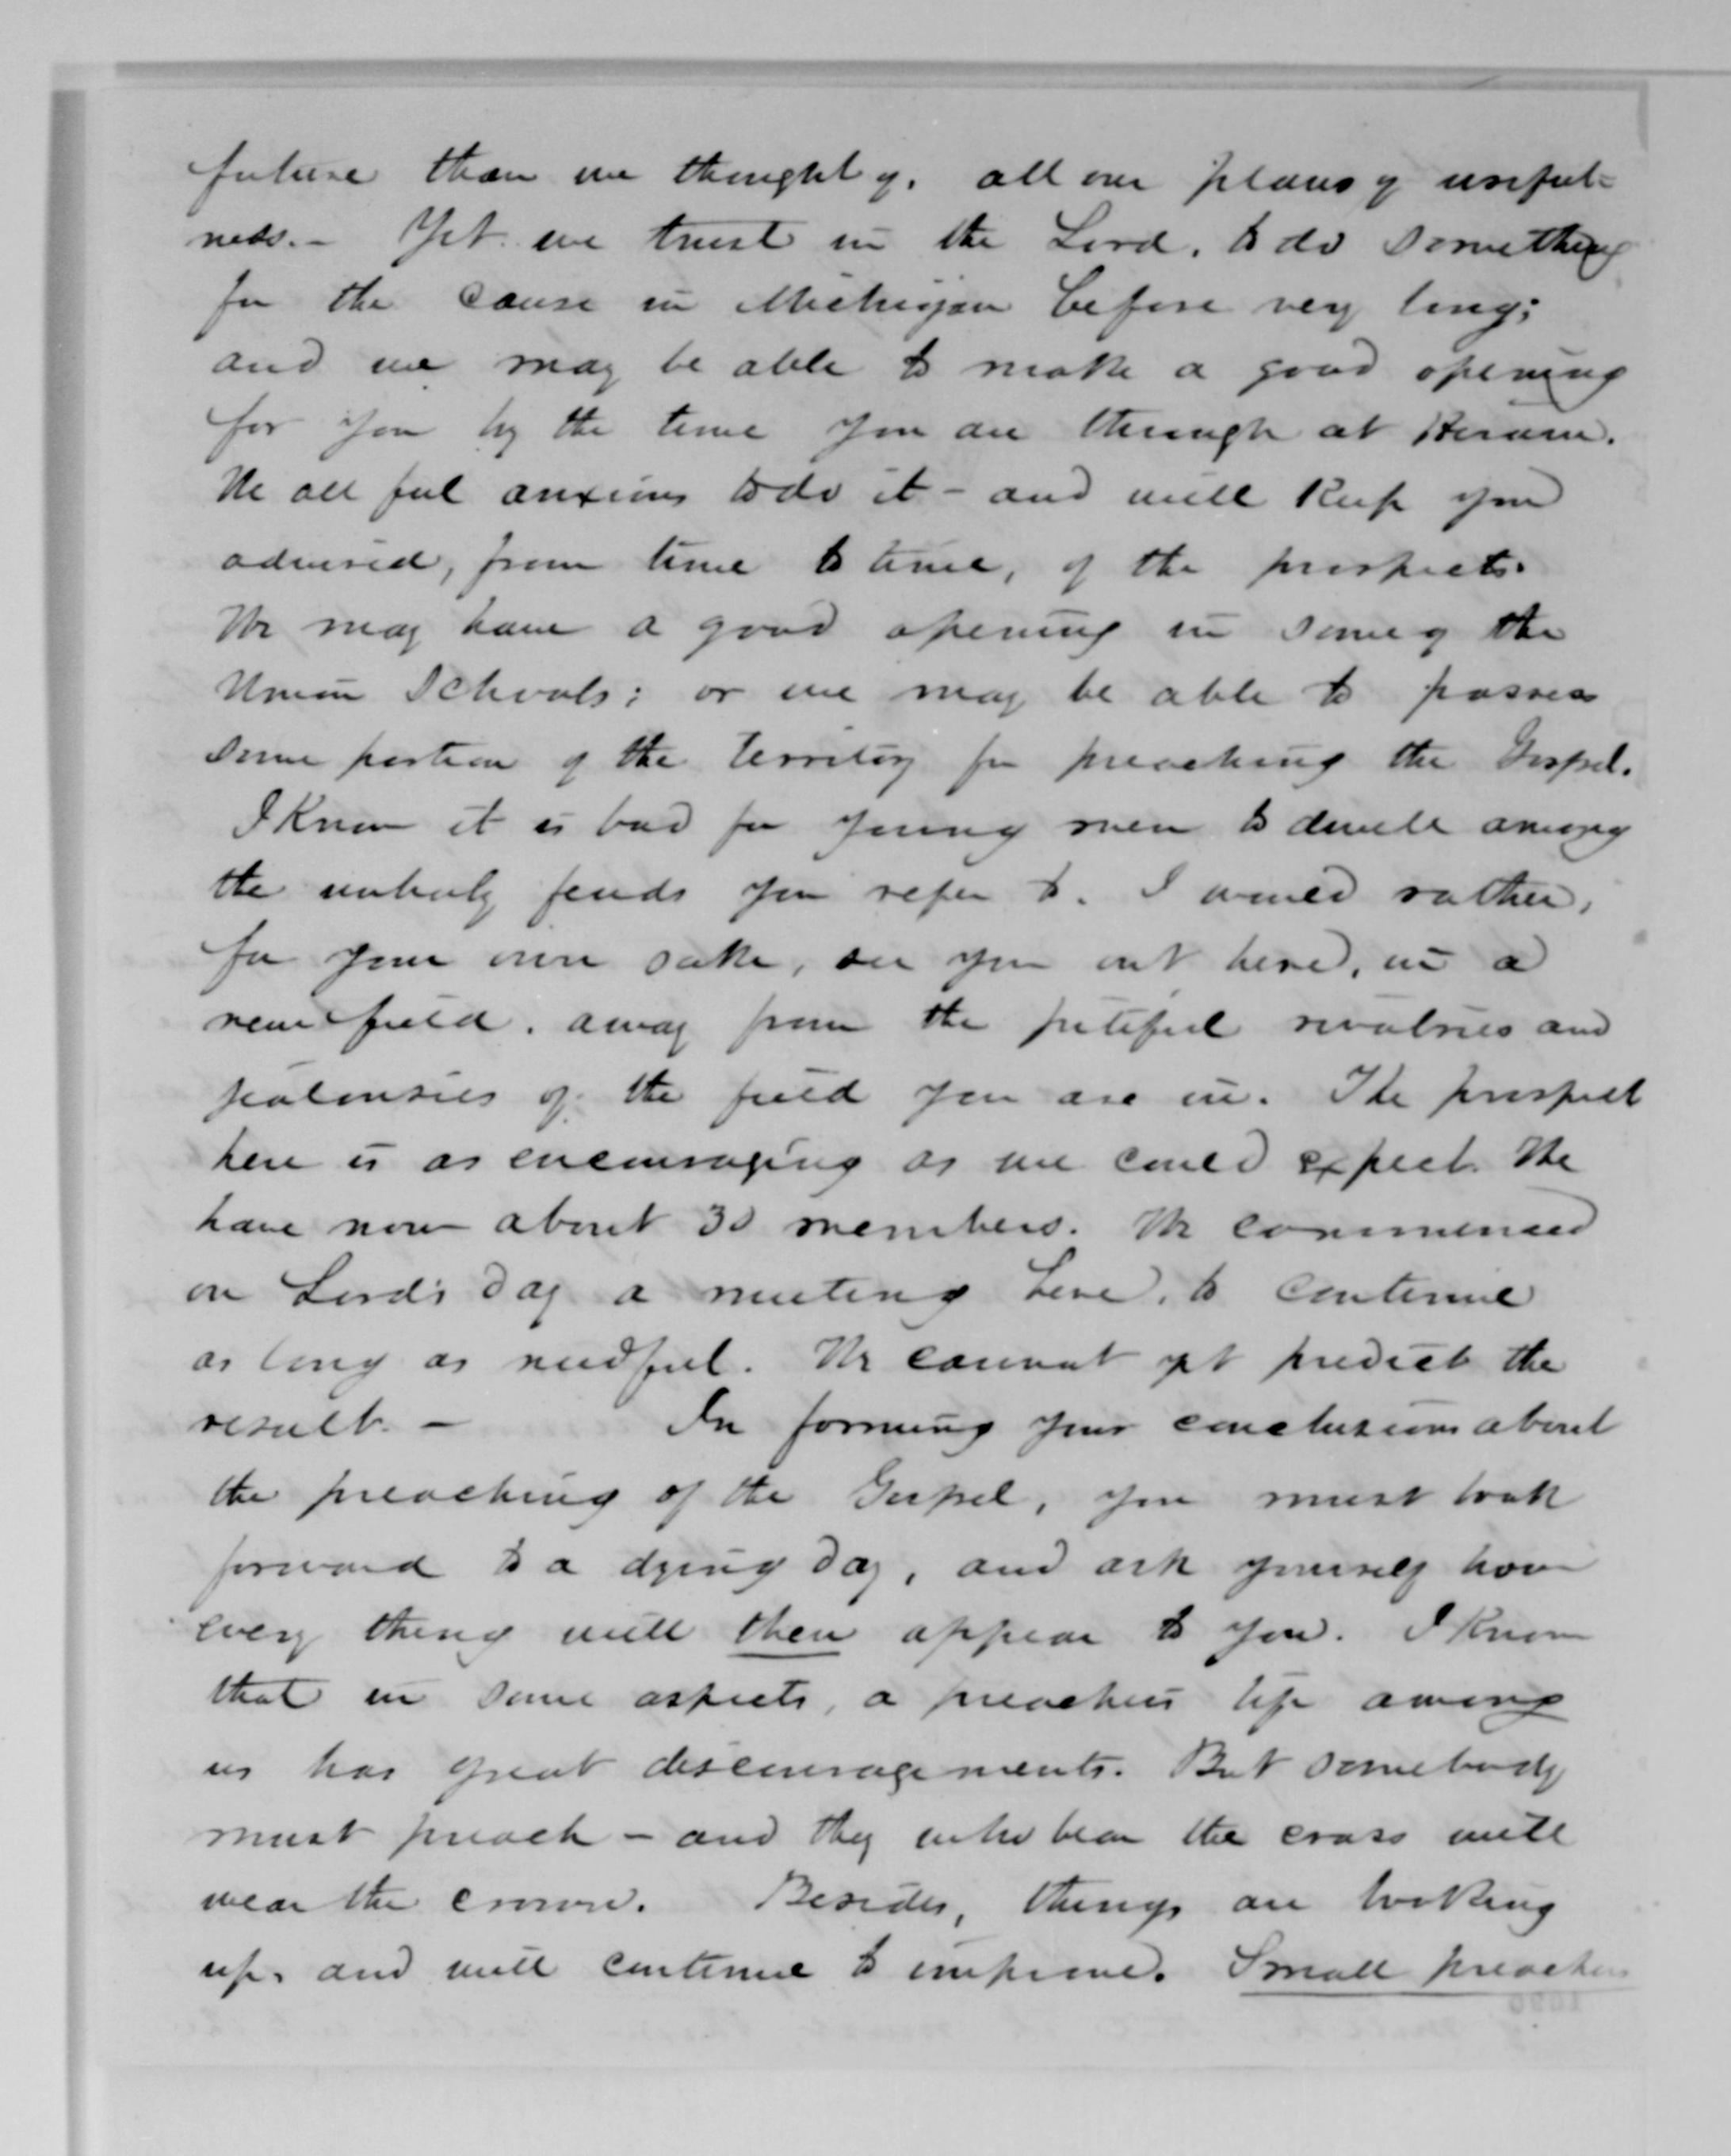 future than we thought of, all our plans of useful-
ness. - Yet we trust in the Lord, to do something
for the cause in Michigan before very long;
and we may be able to make a good opening
for you by the time you are through at Hiram.
We all feel anxious to do it - and will keep you
advised, from time to time, of the prospects.
We may have a good opening in some of the
Union Schools; or we may be able to possess
some portion of the territory for preaching the Gospel.
I know it is bad for young men to dwell among
the unholy feuds you refer to. I would rather,
for your own sake, see you out here, in a
new field, away from the pitiful rivalries and
jealousies of the field you are in. The prospect
here is as encouraging as we could expect. We
have now about 30 members. We commenced
on Lord's day a meeting here, to continue
as long as needful. We cannot yet predict the
result. - In forming your conclusions about
the preaching of the Gospel, you must look
forward to a dying day, and ask yourself how
every thing will then appear to you. I know
that in some aspects, a preachers life among
us has great discouragements. But somebody
must preach - and they who bear the cross will
wear the crown. Besides, things are looking
up, and will continue to improve. Small preachers